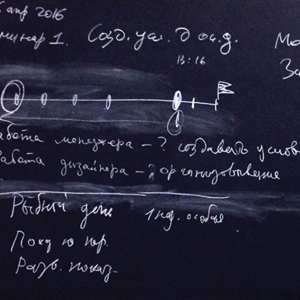 апр 2016
минар 1. Созд. усл. д
13:16
абота менеджера - ? создавать услов
абота дизайнера - ? организовывение
Рыбный день 1 нд. особая
Пок
Разв. показ.